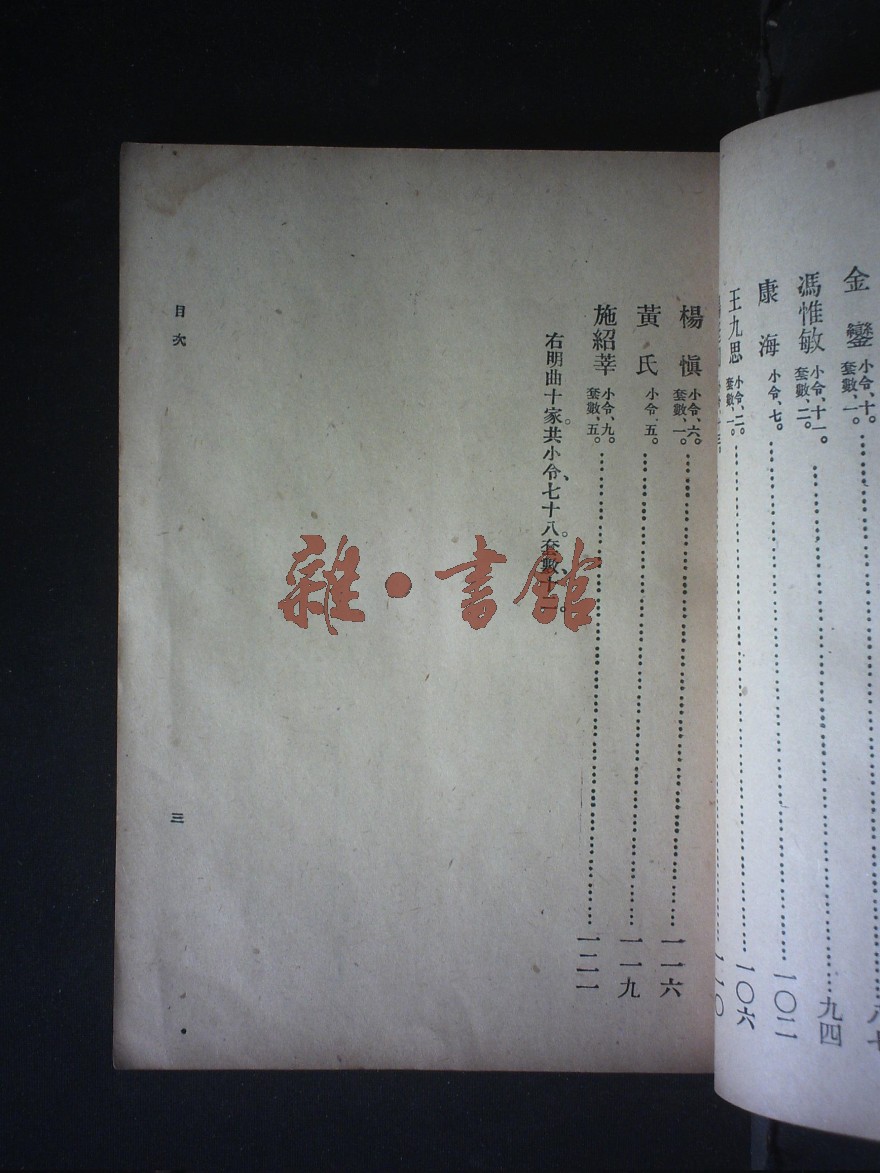 金鑾 小令、十。套數、一。
馮惟敏 小令、十一。套數、二。……九四
康海 小令、七。……一〇二
王九思 小令、二。套數、一。……一〇六
一一〇
楊愼 小令、六。套數、一。……一一六
黃氏 小令、五。……一一九
施紹莘 小令、九。套數、五。……一二一
右明曲十家。共小令、七十八。套數、十一。
目次
三
雜·書館